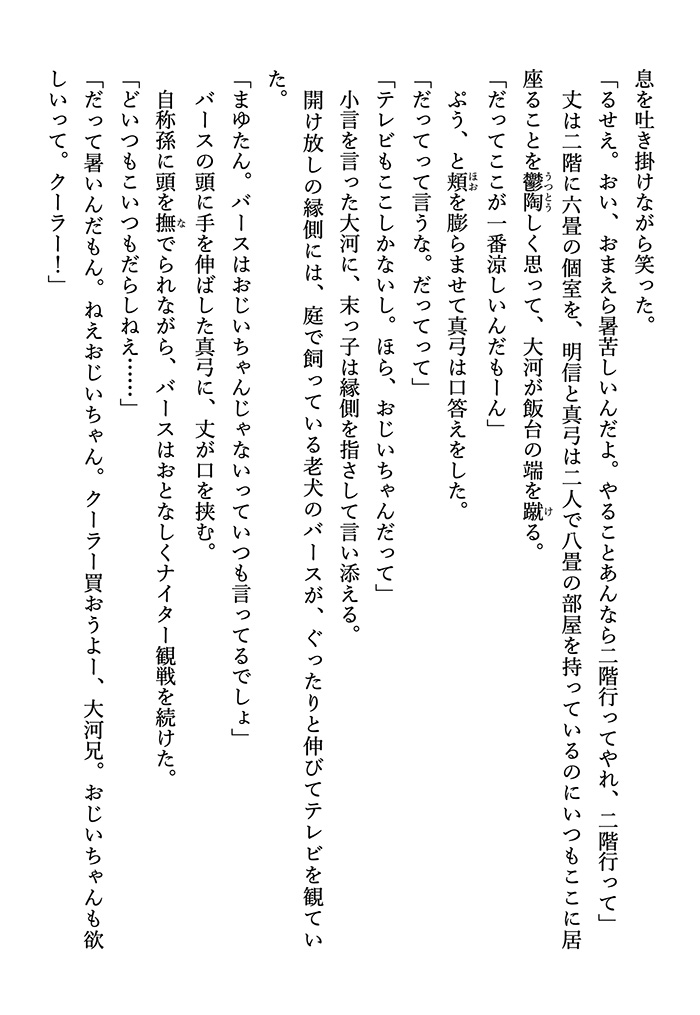 息を吐き掛けながら笑った。
「るせえ。おい、おまえら暑苦しいんだよ。やることあんなら二階行ってやれ、二階行って」
丈は二階に六畳の個室を、明信と真弓は二人で八畳の部屋を持っているのにいつもここに居
座ることを鬱陶しく思って、大河が飯台の端を蹴る。
「だってここが一番涼しいんだもーん」
ぷう、と頬を膨らませて真弓は口答えをした。
「だってって言うな。だってって」
「テレビもここしかないし。ほら、おじいちゃんだって」
小言を言った大河に、末っ子は縁側を指さして言い添える。
開け放しの縁側には、庭で飼っている老犬のバースが、ぐったりと伸びてテレビを観てい
た。
「まゆたん。バースはおじいちゃんじゃないっていつも言ってるでしょ」
バースの頭に手を伸ばした真弓に、丈が口を挟む。
自称孫に頭を撫でられながら、バースはおとなしくナイター観戦を続けた。
「どいつもこいつもだらしねえ……」
「だって暑いんだもん。ねえおじいちゃん。クーラー買おうよー、大河兄。おじいちゃんも欲
しいって。クーラー！」